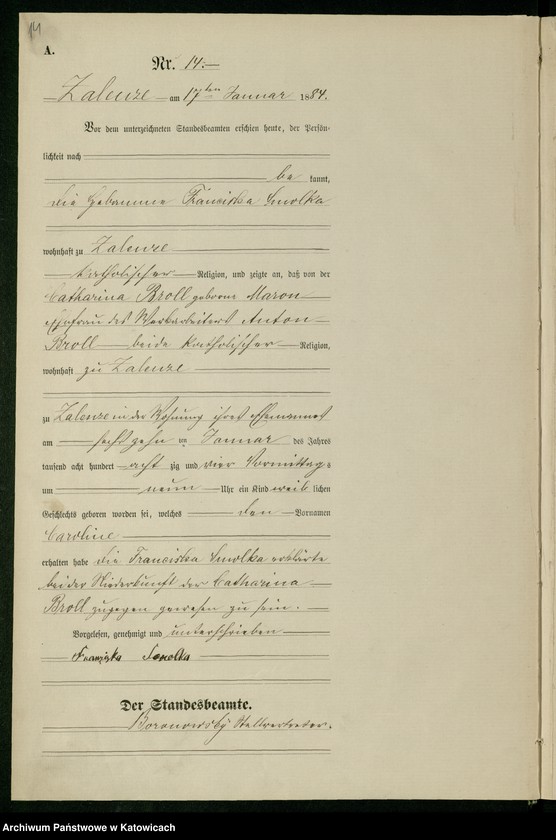 14
A.
Nr. 14.
Zalenze am 17ten Januar 1884.
Vor dem unterzeichneten Standesbeamten erschien heute, der Persön-
lichkeit nach
be kannt,
die Hebamme Franciska Smolka
wohnhaft zu Zalenze
katholischer Religion, und zeigte an, daß von der
Catharina Broll geborne Maron
Ehefrau des Werkarbeiters Anton
Broll beide katholischer Religion,
wohnhaft zu Zalenze
zu Zalenze in der Wohnung ihres Ehemannes
am sechszehn ten Januar des Jahres
tausend acht hundert acht zig und vier Vormittags
um neun Uhr ein Kind weib lichen
Geschlechts geboren worden sei, welches den Vornamen
Caroline
erhalten habe die Franciska Smolka erklärte
bei der Niederkunft der Catharina
Broll zugegen gewesen zu sein.
Vorgelesen, genehmigt und unterschrieben
Franziska Smolka
Der Standesbeamte.
Boronowsky Stellvertreter.
Archiwum Państwowe w Katowicach